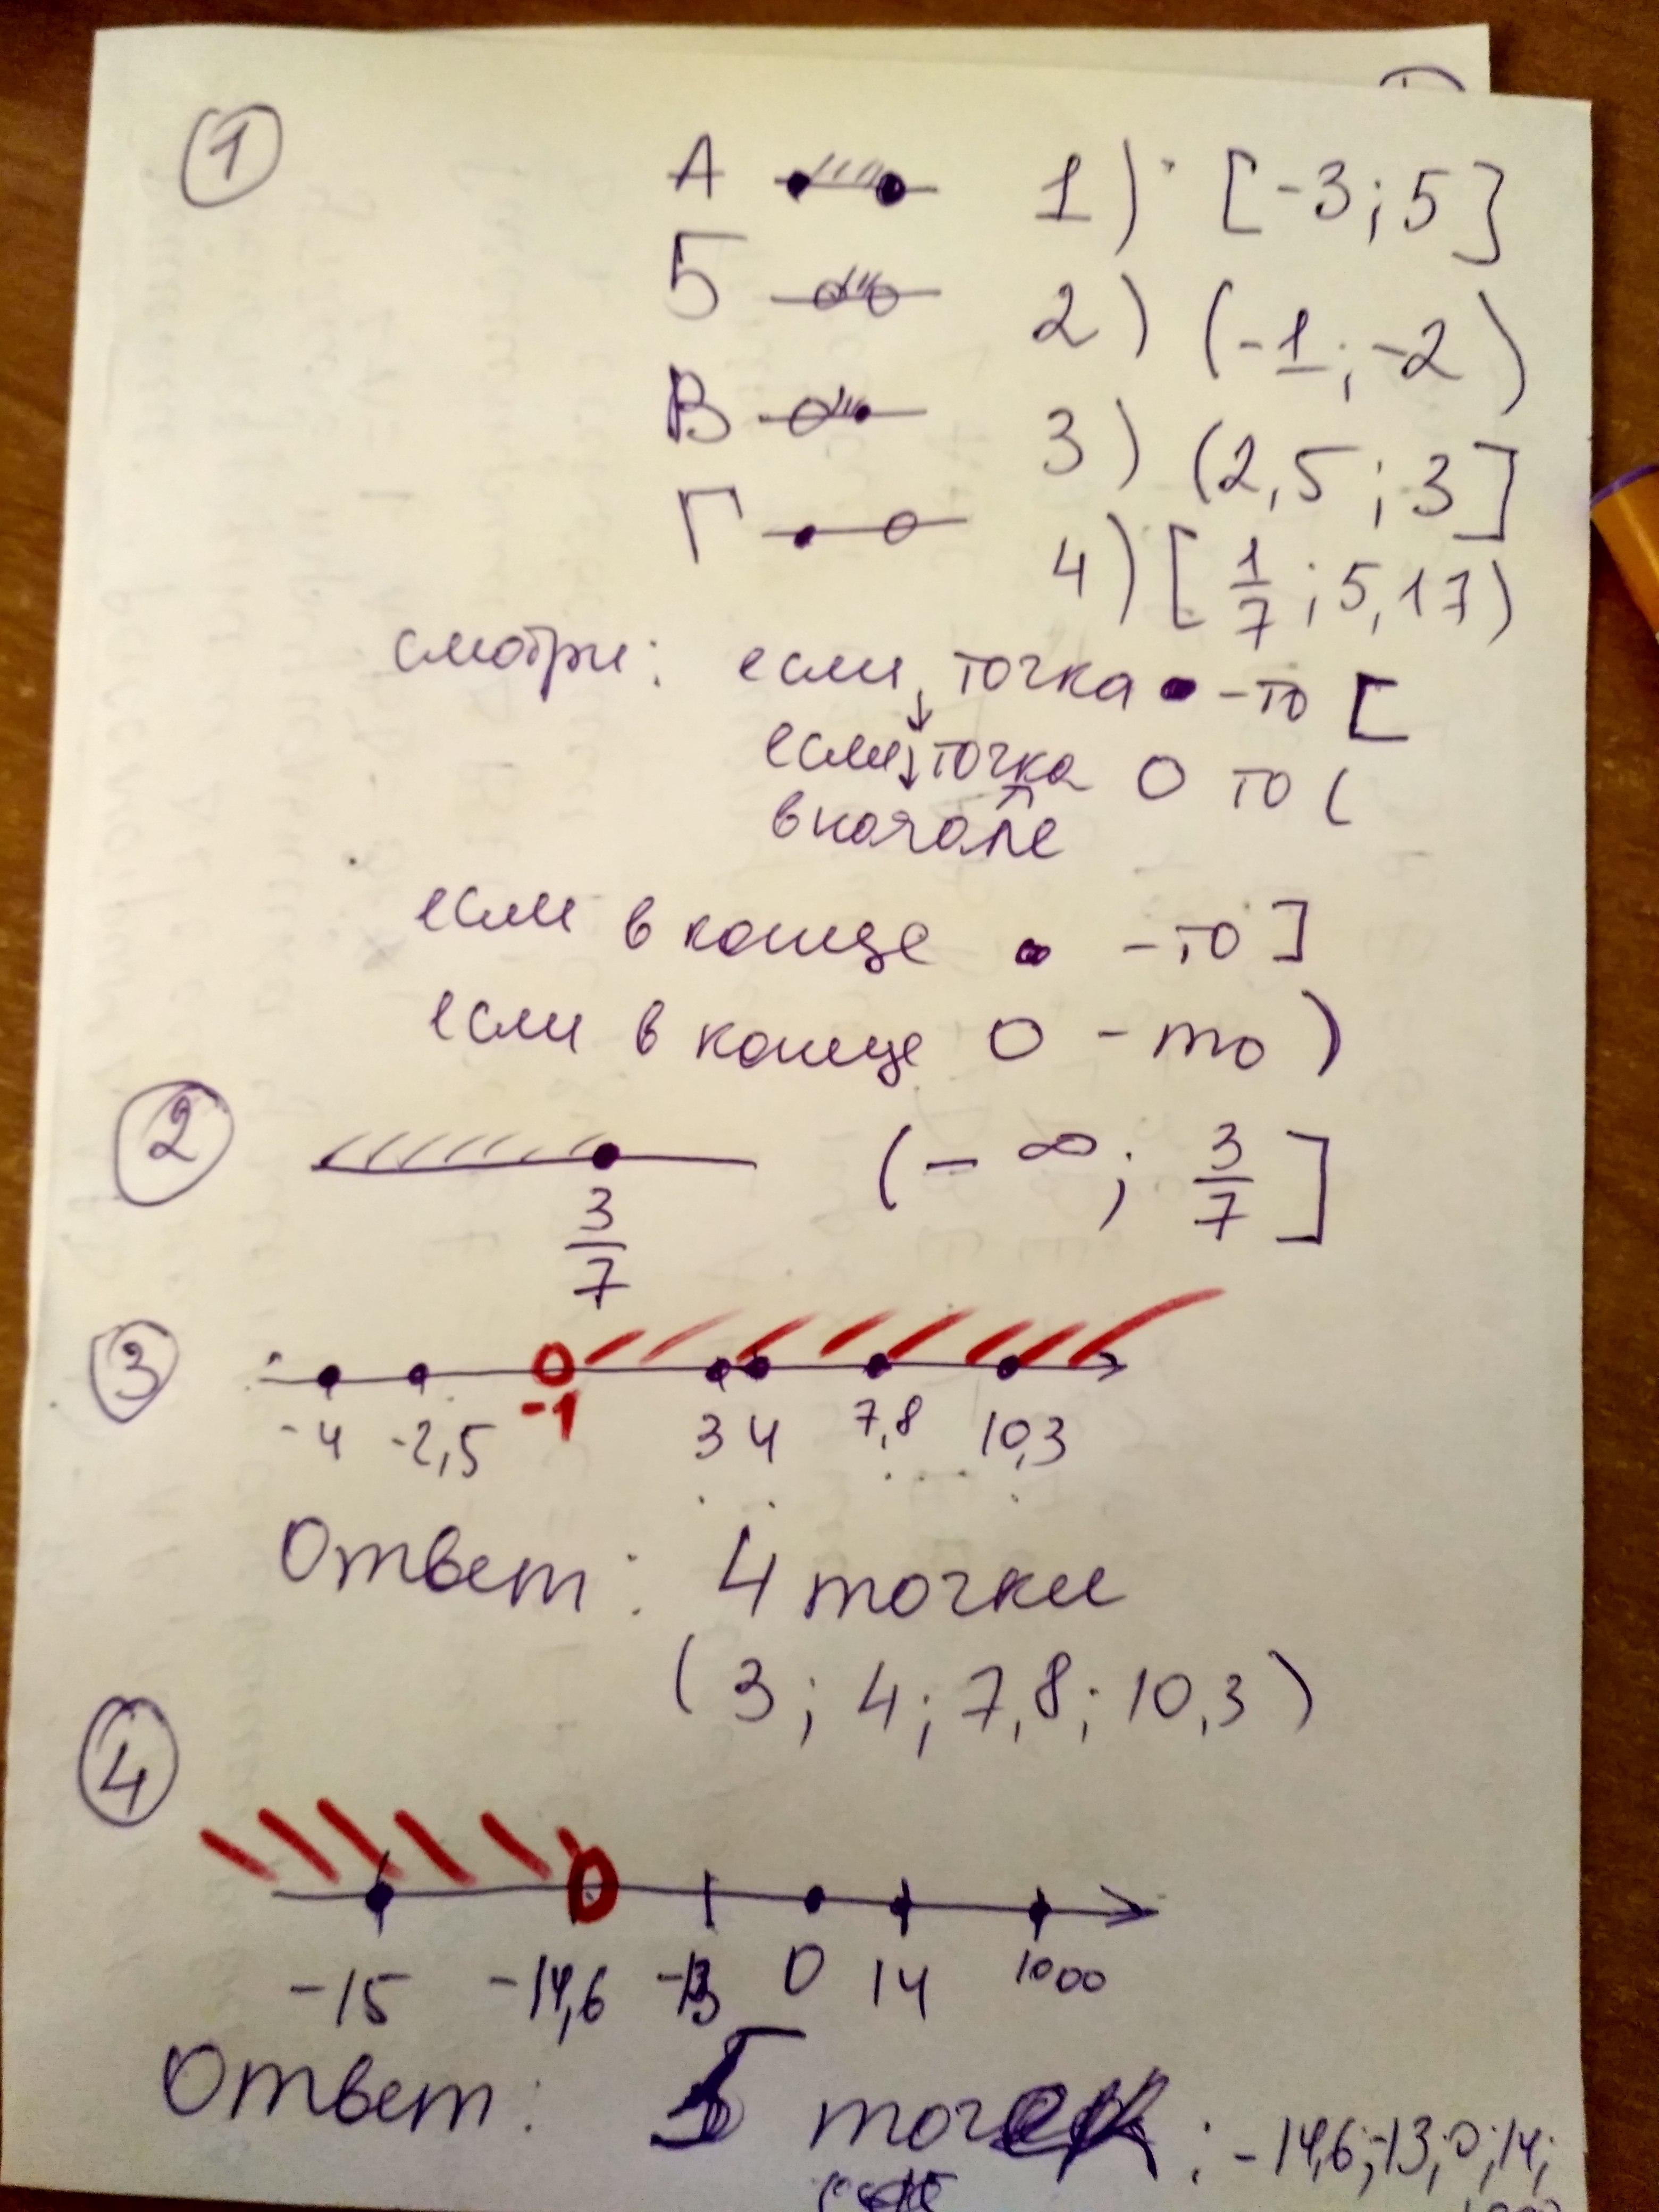 1
А 1) [-3; 5]
Б 2) (-1; -2)
В 3) (2,5; 3]
Г 4) [1/7; 5,17)
смотри: если точка • - то [
если точка О то (
вначале
если в конце • - то ]
если в конце О - то )
2
3/7 (-∞; 3/7]
3
-4 -2,5 -1 3 4 7,8 10,3
Ответ: 4 точки
(3; 4; 7,8; 10,3)
4
-15 -14,6 -13 0 14 1000
Ответ: 5 точек : -14,6; -13; 0; 14;